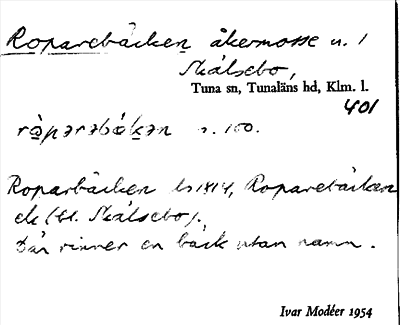 Roparebäcken åkermosse n. 1
Skälsebo,
Tuna sn, Tunaläns hd, Klm. l.
401
s. 100.
Roparbäcken ls 1814, Roparebäcken
ek (bl. Skälsebo).
Där rinner en bäck utan namn.
Ivar Modéer 1954